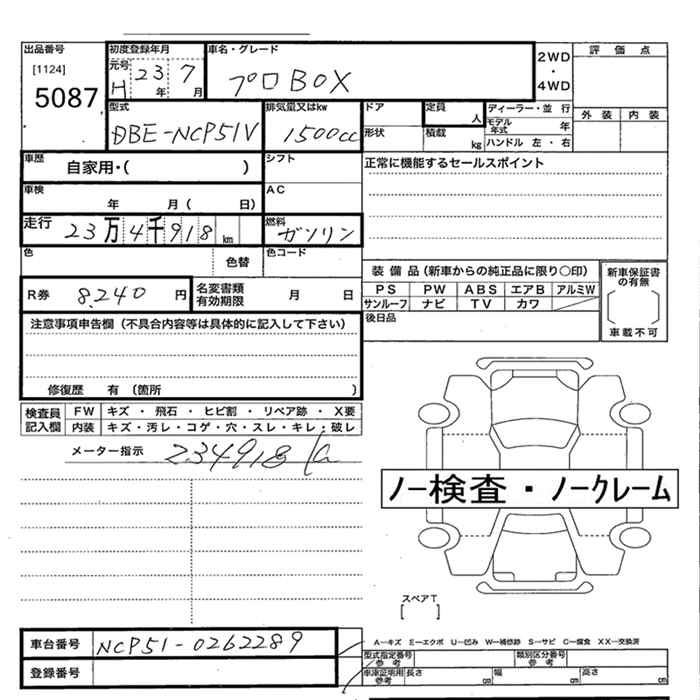 出品番号 初度登録年月 車名・グレード 2WD・4WD 評価点
[1124] 元号 H 23年 7月 プロBOX
5087 外装 内装
型式 排気量又はkw ドア 定員 人 ディーラー・並行
DBE-NCP51V 1500cc 形状 積載 kg モデル年式 年
ハンドル 左・右
車歴 自家用・( ) シフト 正常に機能するセールスポイント
車検 年 月( 日) AC
走行 23万4千918km 燃料 ガソリン
色 色替 色コード
装備品(新車からの純正品に限り○印) 新車保証書の有無
R券 8,240円 名変書類有効期限 月 日 PS PW ABS エアB アルミW
サンルーフ ナビ TV カワ
注意事項申告欄(不具合内容等は具体的に記入して下さい) 後日品 車載不可
修復歴 有 (箇所 )
検査員記入欄 FW キズ・飛石・ヒビ割・リペア跡・X要
内装 キズ・汚レ・コゲ・穴・スレ・キレ・破レ
メーター指示 234918
ノー検査・ノークレーム
スペアT
[ ]
車台番号 NCP51-0262289 A−キズ E−エクボ U−凹み W−補修跡 S−サビ C−腐食 XX−交換済
型式指定番号 参考 類別区分番号 参考
登録番号 車庫証明用 参考 長さ cm 幅 cm 高さ cm